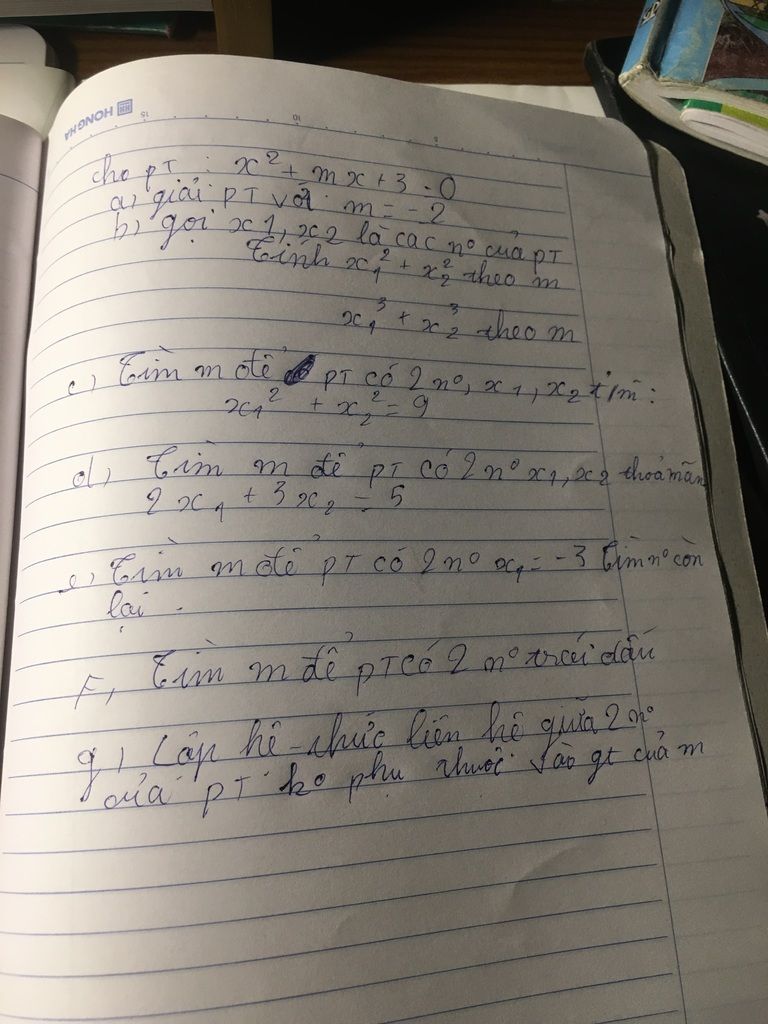 HONG HA
15 10 5
cho pT : x² + mx + 3 = 0
a, giải pT với m = -2
b, gọi x1, x2 là các nº của pT
Tính x₁² + x₂² theo m
x₁³ + x₂³ theo m
c, Tìm m để pT có 2 nº, x₁, x₂ t/m :
x₁² + x₂² = 9
d, Tìm m để pT có 2 nº x₁, x₂ thoả mãn
2x₁ + 3x₂ = 5
e, Tìm m để pT có 2 nº x₁ = -3 Tìm nº còn
lại .
F, Tìm m để pT có 2 nº trái dấu
g, Lập hê thức liên hê giữa 2 nº
của pT ko phụ thuôc vào gt của m